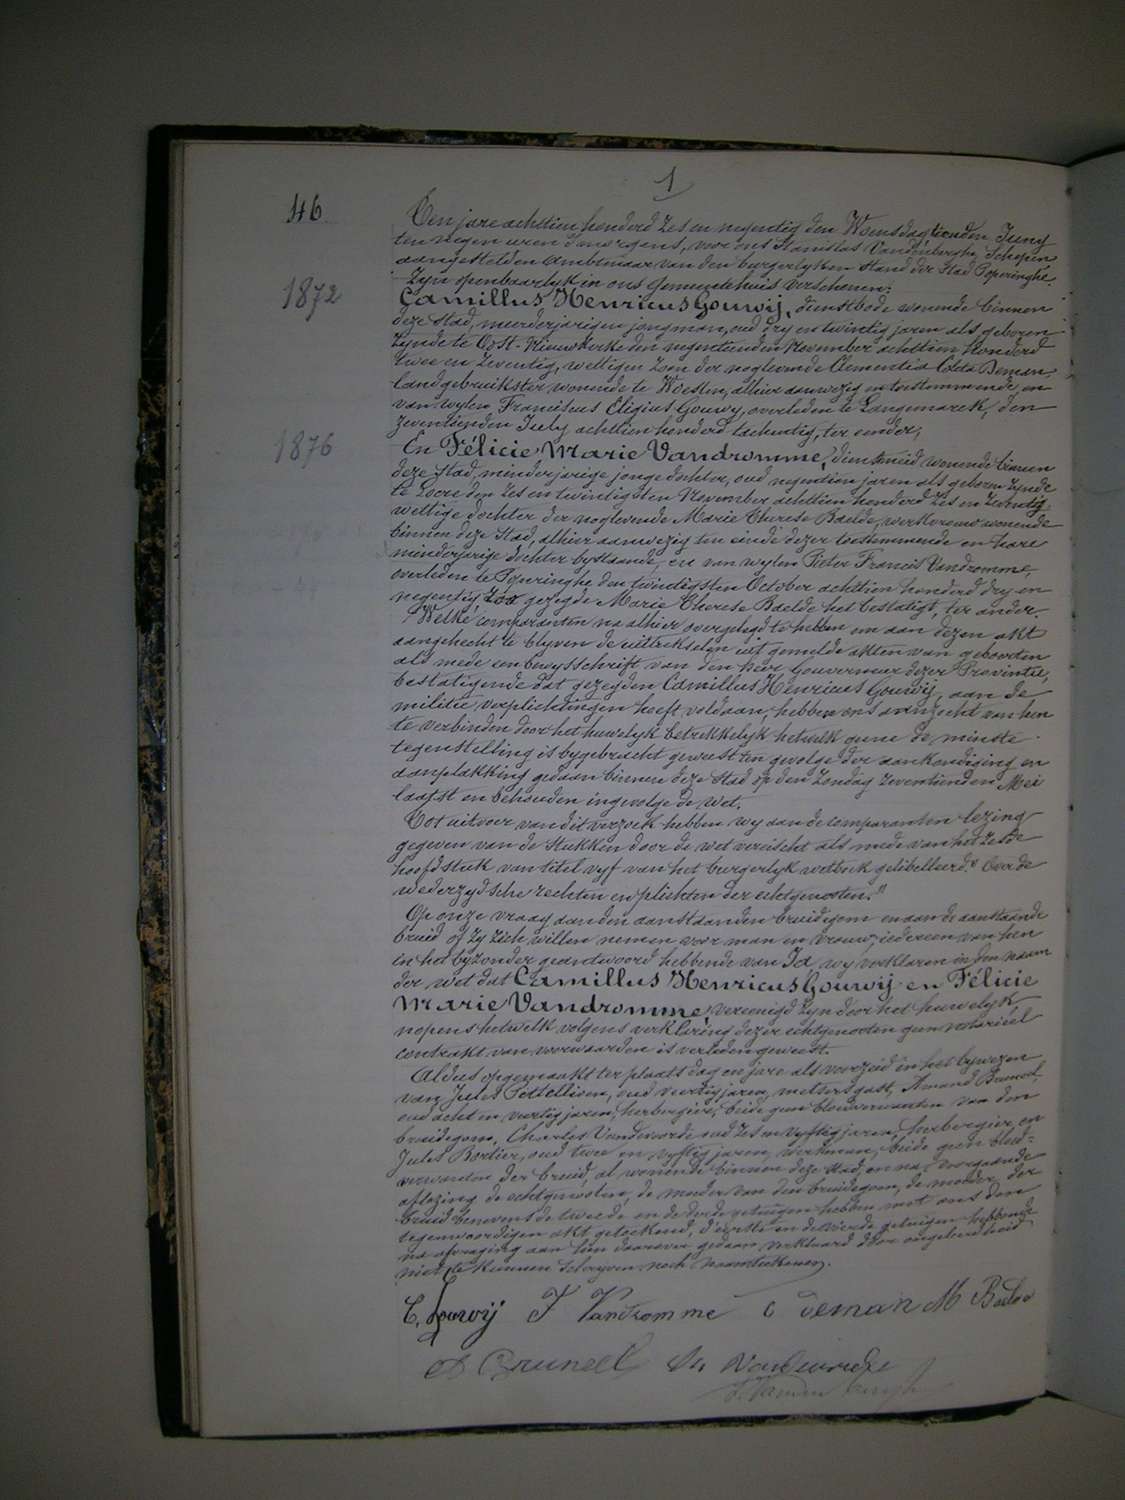 1
46
Ten jare achttien honderd zes en negentig den Woensdag tienden Juny
ten negen uren s'morgens, voor ons Stanislas Vandenberghe, Schepen
aangestelden ambtenaar van den burgerlyken stand der Stad Poperinghe.
Zyn openbaarlyk in ons Gemeentehuis verschenen:
1872
Camillus Henricus Gouwij, dienstbode wonende binnen
deze Stad, meerderjarigen jongman, oud dry en twintig jaren als geboren
zynde te Oost-Nieuwkerke den negentienden November achttien honderd
twee en zeventig, wettigen zoon der noglevende Clementia Coleta Deman,
landgebruikster wonende te Woesten, alhier aanwezig en toestemmende, en
van wylen Franciscus Eligius Gouwy, overleden te Langemarck, den
zeventienden July achttien honderd tachentig, ter eender;
1876
En Félicie Marie Vandromme, dienstmeid wonende binnen
deze Stad, minderjarige jonge dochter, oud negentien jaren als geboren zynde
te Locre den zes en twintigsten November achttien honderd zes en zeventig,
wettige dochter der noglevende Marie Therese Baelde, werkvrouw wonende
binnen deze Stad, alhier aanwezig ten einde dezer toestemmende en hare
minderjarige dochter bystaande, en van wylen Pieter Francis Vandromme,
overleden te Poperinghe den twintigsten October achttien honderd dry en
negentig zoo gezegde Marie Therese Baelde het bestatigt, ter ander.
Welke comparanten na alhier overgelegd te hebben om aan dezen akt
aangehecht te blyven de uittrekselen uit gemelde akten van geboorten
als mede een bewysschrift van den heer Gouverneur dezer Provintie,
bestatigende dat gezegden Camillus Henricus Gouwij, aan de
militie verplichtingen heeft voldaan, hebben ons aanzocht van hen
te verbinden door het huwelyk betrekkelyk hetwelk geene de minste
tegenstelling is bygebracht geweest ten gevolge der aankondiging en
aanplakking gedaan binnen deze Stad op den Zondag zeventienden Mei
laatst en behouden ingevolge de wet.
Tot uitvoer van dit verzoek hebben wy aan de comparanten lezing
gegeven van de stukken door de wet vereischt als mede van het zesde
hoofdstuk van titel vyf van het burgerlyk wetboek gelibelleerd: " Over de
wederzydsche rechten en plichten der echtgenooten."
Op onze vraag aan den aanstaanden bruidegom en aan de aanstaande
bruid of zy zich willen nemen voor man en vrouw, iedereen van hen
in het byzonder geantwoord hebbende van Ja, wy verklaren in den naam
der wet dat Camillus Henricus Gouwij en Félicie
Marie Vandromme, vereenigd zyn door het huwelyk,
nopens hetwelk volgens verklaring dezer echtgenooten geen notarieel
contrakt van voorwaarden is verleden geweest.
Aldus opgemaakt ter plaats dag en jare als voorzeid in het bywezen
van Jules oud veertig jaren, metsersgast, Amand Bruneel,
oud acht en veertig jaren, herbergier, beide geen bloedverwanten van den
bruidegom, Charles Vandevoorde oud zes en vyftig jaren, herbergier en
Jules Bortier, oud twee en vyftig jaren, werkman, beide geen bloed-
verwanten der bruid, al wonende binnen deze stad, en na voorgaande
aflezing de echtgenooten, de moeder van den bruidegom, de moeder der
bruid benevens de tweede en de derde getuigen hebben met ons den
tegenwoordigen akt geteekend, d'eerste en de vierde getuigen hebbende
na afvraging aan hun daarover gedaan verklaard door ongeleerdheid
niet te kunnen schryven noch naamteekenen.
C. Gouwij F Vandromme C Deman M Baelde
A Bruneel Ch Vandevoorde